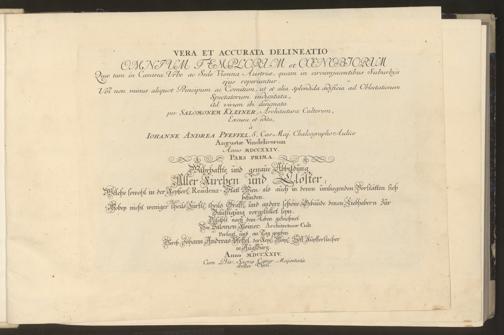 VERA ET ACCURATA DELINEATIO
OMNIUM TEMPLORUM et COENOBIORUM
Quæ tam in Cæsarea Urbe ac Sede Vienna Austriæ, quam in circumjacentibus Suburbijs
ejus reperiuntur
Ubi non minus aliquot Principum ac Comitum, ut et alia splendida ædificia ad Oblectationem
Spectatorum
ad vivum delineata
per SALOMONEM KLEINER, Architecturæ Cultorem,
Excusa et edita,
à
IOHANNE ANDREA PFEFFEL, S. Cæs. Maj. Chalcographo Aulico
Augustæ Vindelicorum
Anno MDCCXXIV.
PARS PRIMA
Warhaffte und genaue Abbildung
Aller Kirchen und Clöster,
Welche sowohl in der Keyserl. Residenz-Statt Wien, als auch in denen umliegenden Vorstätten sich
befinden.
Wobey nicht weniger theils Fürstl. theils Gräffl. und andere schöne Gebäude denen Liebhabern zur
vorgestellet seyn.
nach dem Leben gezeichnet
Von Salomon Kleiner, Architecturæ Cult.
Verlegt und an Tag gegeben
Durch Johann Andreas Pfeffel, der Röm. Keys. Maj. Hoff-Kupfferstecher
in Augspurg.
Anno MDCCXXIV.
Cum Priv. Sacræ Cæsar. Majestatis
Erster Theil.